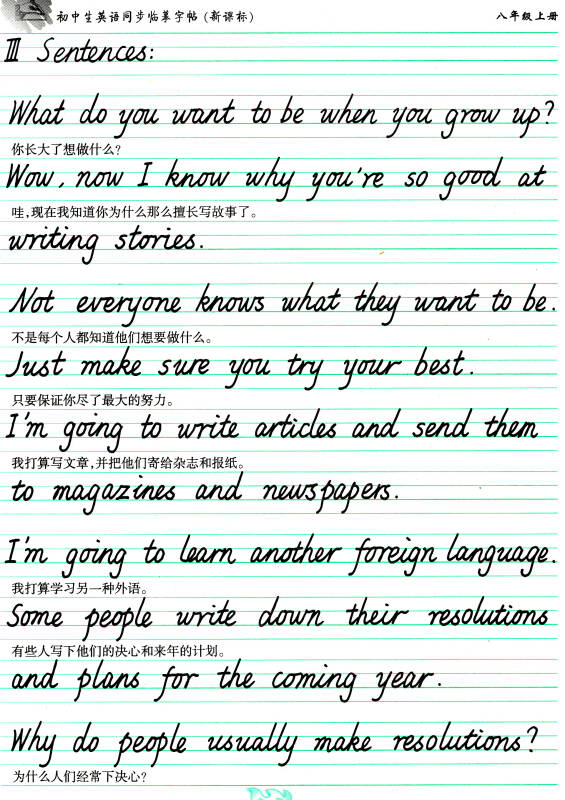 初中生英语同步临摹字帖(新课标) 八年级上册
III Sentences:
What do you want to be when you grow up?
你长大了想做什么?
Wow, now I know why you're so good at
哇,现在我知道你为什么那么擅长写故事了。
writing stories.
Not everyone knows what they want to be.
不是每个人都知道他们想要做什么。
Just make sure you try your best.
只要保证你尽了最大的努力。
I'm going to write articles and send them
我打算写文章,并把他们寄给杂志和报纸。
to magazines and newspapers.
I'm going to learn another foreign language.
我打算学习另一种外语。
Some people write down their resolutions
有些人写下他们的决心和来年的计划。
and plans for the coming year.
Why do people usually make resolutions?
为什么人们经常下决心?